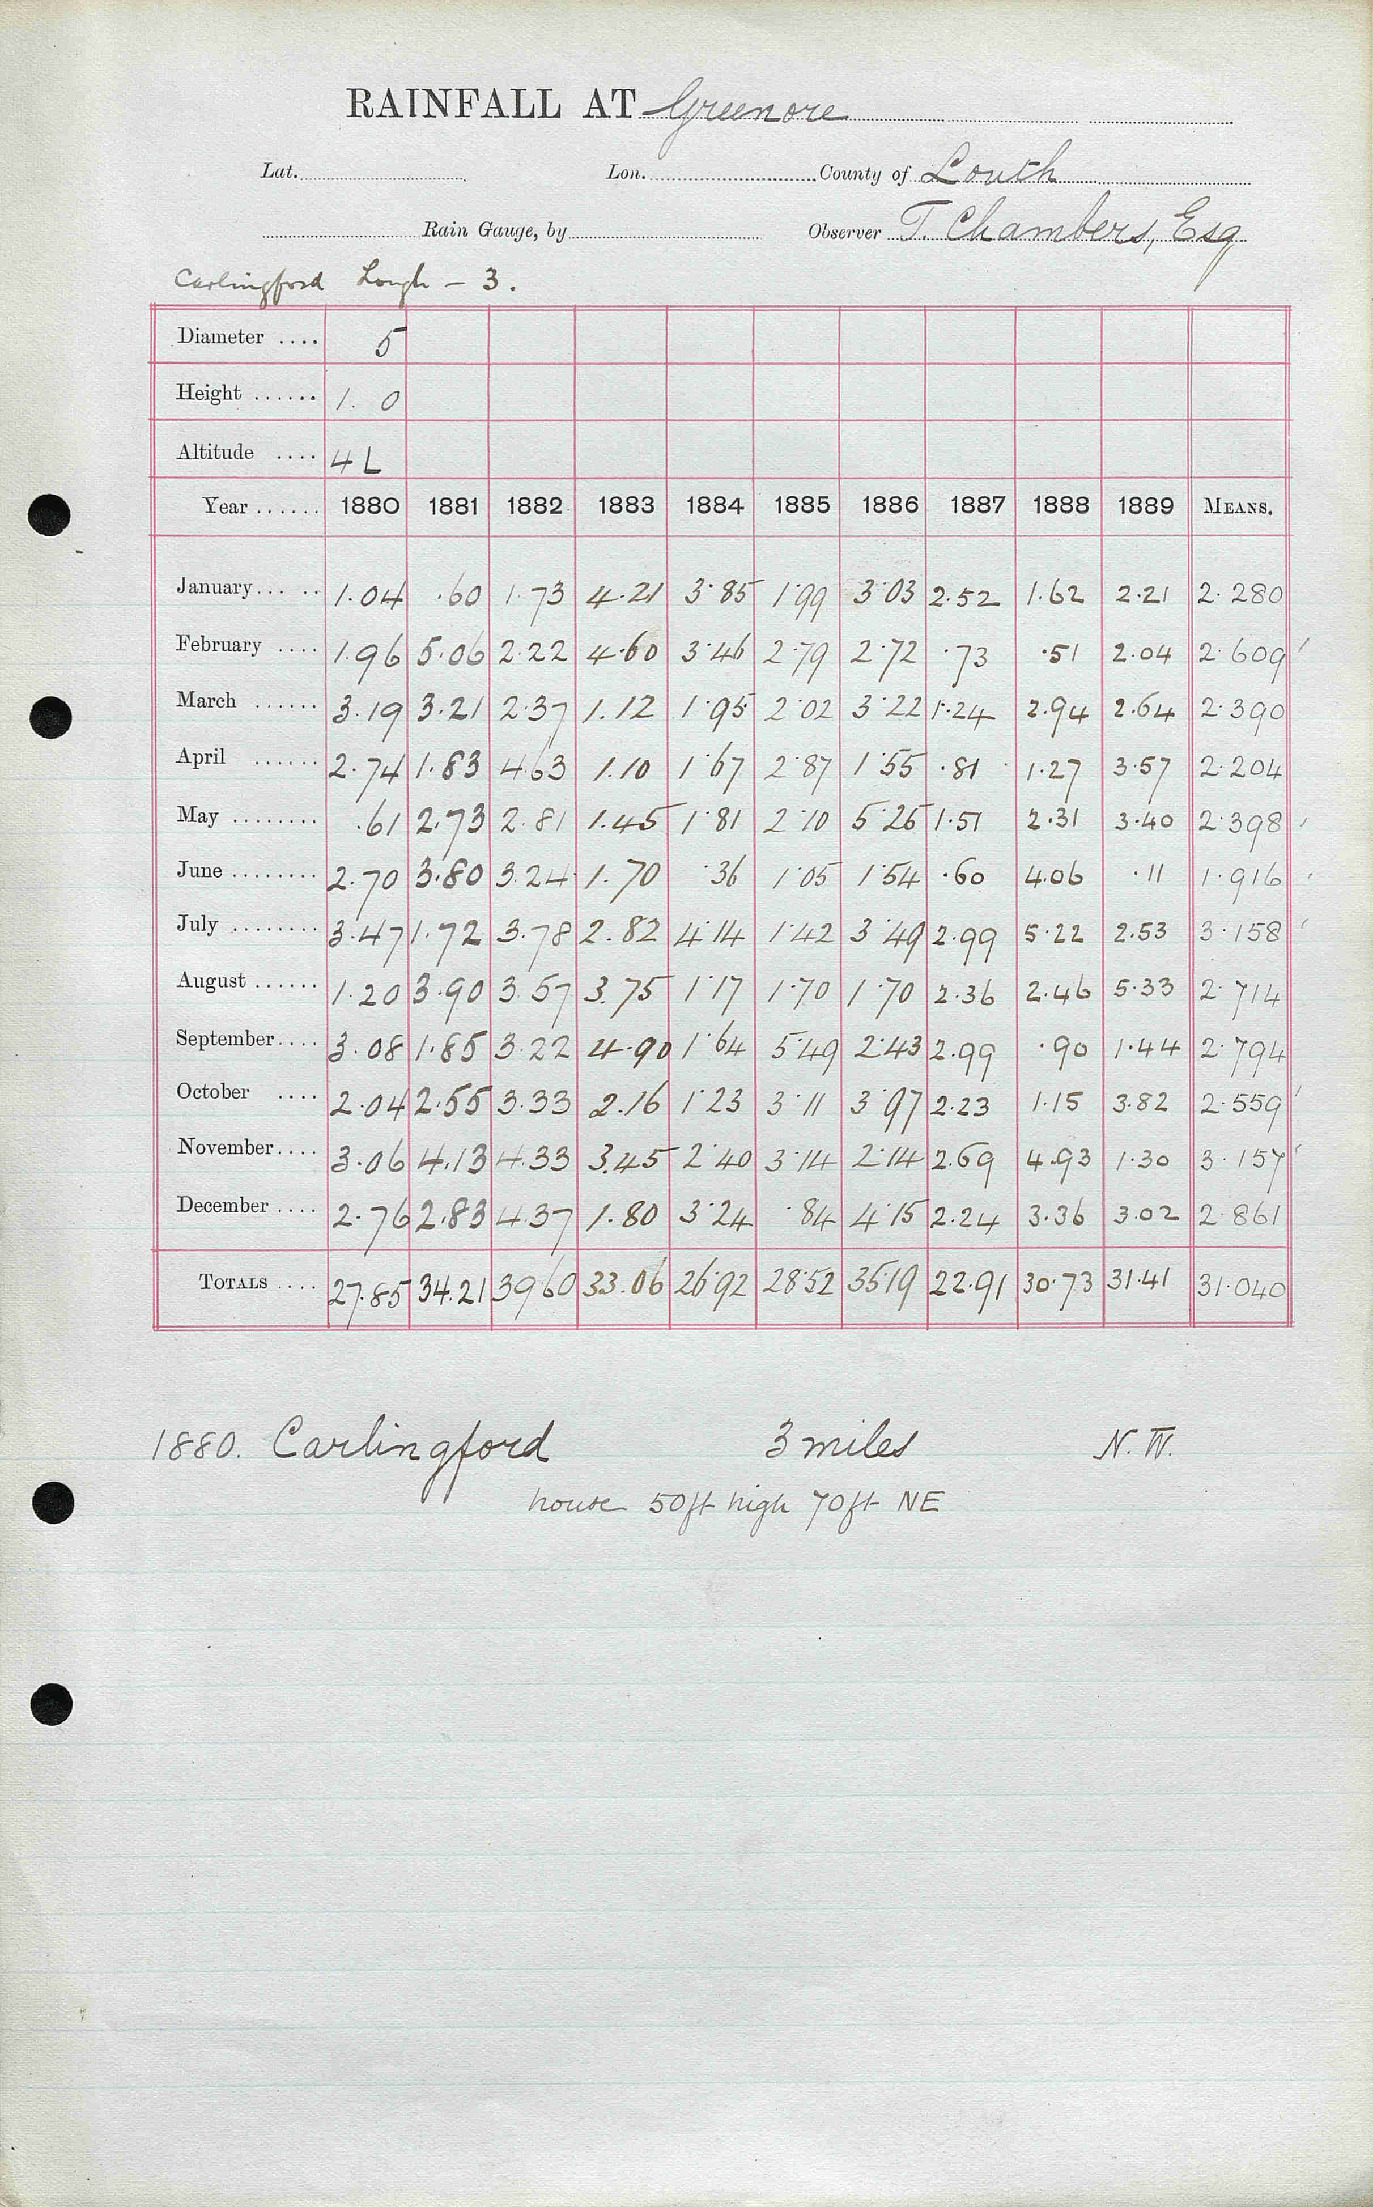 RAINFALL AT Greenore
Lat. Lon. County of Louth
Rain Gauge, by Observer T. Chambers, Esq
Carlingford Lough - 3.
Diameter .... 5
Height ...... 1. 0
Altitude .... 4 L
Year ...... 1880 1881 1882 1883 1884 1885 1886 1887 1888 1889 MEANS.
January ..... 1.04 .60 1.73 4.21 3.85 1.99 3.03 2.52 1.62 2.21 2.280
February .... 1.96 5.06 2.22 4.60 3.46 2.79 2.72 .73 .51 2.04 2.609
March ...... 3.19 3.21 2.37 1.12 1.95 2.02 3.22 1.24 2.94 2.64 2.390
April ...... 2.74 1.83 4.63 1.10 1.67 2.87 1.55 .81 1.27 3.57 2.204
May ........ .61 2.73 2.81 1.45 1.81 2.10 5.25 1.51 2.31 3.40 2.398
June ........ 2.70 3.80 3.24 1.70 .36 1.05 1.54 .60 4.06 .11 1.916
July ........ 3.47 1.72 3.78 2.82 4.14 1.42 3.49 2.99 5.22 2.53 3.158
August ...... 1.20 3.90 3.57 3.75 1.17 1.70 1.70 2.36 2.46 5.33 2.714
September .... 3.08 1.85 3.22 4.90 1.64 5.49 2.43 2.99 .90 1.44 2.794
October .... 2.04 2.55 3.33 2.16 1.23 3.11 3.97 2.23 1.15 3.82 2.559
November .... 3.06 4.13 4.33 3.45 2.40 3.14 2.14 2.69 4.93 1.30 3.157
December .... 2.76 2.83 4.37 1.80 3.24 .84 4.15 2.24 3.36 3.02 2.861
TOTALS .... 27.85 34.21 39.60 33.06 26.92 28.52 35.19 22.91 30.73 31.41 31.040
1880. Carlingford 3 miles N.W.
house 50ft high 70ft NE